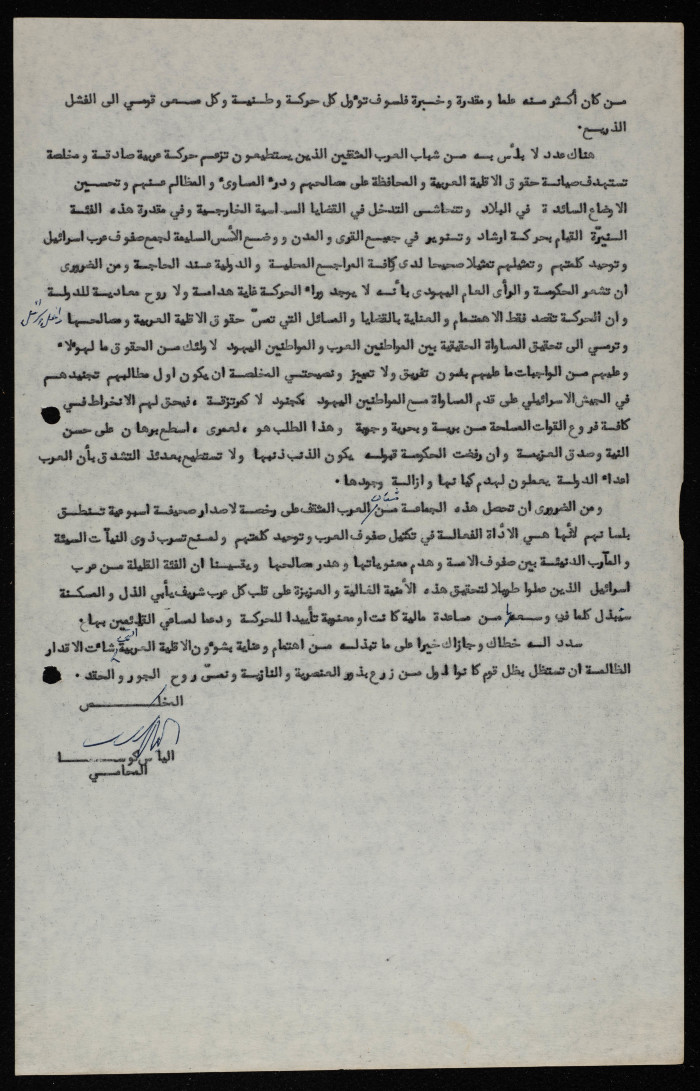 مـن كان أكـثر منه علما و مقدرة و خـبرة فلسوف توؤول كل حركـة و طـنيـة وكل مسعى قومـي الى الفشل
الذريـع.
هناك عدد لا بأس بـه مـن شباب العرب المثقفين الذين يستطيعـون تزعـم حركـة عربية صادقـة و مخلصة
تستهدف صيانـة حقـوق الاقلية العربيـة و المحافظـة على مصالحهـم و درء المساوىء و المظالم عنهـم و تحسـين
الاوضاع السائدة في البلاد و تتحاشى التدخل في القضايا السياسية الخارجية وفي مقدرة هذه الفئـة
النـيّرة القيام بحركـة ارشاد و تنويـر في جميـع القرى و المدن و وضـع الأسس السليمة لجمع صفوف عرب اسرائيل
و توحيد كلمتهم و تمثيلهم تمثيلا صحيحا لدى كافـة المراجع المحليـة و الدولية عنـد الحاجـة و من الضرورى
ان تشعر الحكومـة و الرأى العام اليهودى بأنـه لا يوجد وراء الحركـة غاية هدامـة ولا روح معاديـة للدولـة
و ان الحركة تقصد فقط الاهتمام و العناية بالقضايا و المسائل التي تمسّ حقـوق الاقلية العربيـة و مصالحـها
و ترمـي الى تحقيق المساواة الحقيقية بين المواطنين العرب و المواطنين اليهود لاولئك مـن الحقـوق ما لهـؤلاء
و عليهم مـن الواجبات ما عليهم بدون تفريق ولا تمييز و نصيحتـي المخلصـة ان يكون اول مطالبهم تجنيدهـم
في الجيش الاسرائيلي على قدم المساواة مـع المواطنين اليهود كجنود لا كمرتزقـة ، فيحق لهم الانخراط فـي
كافـة فروع القوات المسلحة مـن بريـة و بحرية و جوية و هذا الطلب هو ، لعمرى ، اسطع برهان على حسن
النية و صدق العزيمـة و ان رفضت الحكومـة قبولـه يكون الذنب ذنبها ولا تستطيع بعدئذ التشدق بأن العرب
اعداء الدولـة يعملون لهدم كيانها و ازالـة وجودها .
و من الضرورى ان تحصل هذه الجماعـة مـن شباب العرب المثقف على رخصة لاصدار صحيفـة اسبوعية تنطـق
بلسانهم لأنها هـي الأداة الفعالـة في تكتيل صفوف العرب و توحيد كلمتهم ولمنع تسرب ذوى النيآت السيئة
و المآرب الدنيئـة بين صفوف الامـة و هدم معنوياتها و هدر مصالحـها و يقيـنـا ان الفئة القليلة مـن عرب
اسرائيل الذين عملوا طويلا لتحقيق هذه الأمنية الغالية و العزيزة على قلب كل عربي شريف يأبي الذل و المسكنة
ستبذل كلما في وسعها مـن مساعدة مالية كانت او معنوية تأييدا للحركـة و دعما لمساعي القائمين بها.
سدد الله خطاك و جازاك خيرا على ما تبذلـه مـن اهتمام و عناية بشوءون الاقلية العربية شاءت الاقدار
الظالمـة ان تستظل بظل قوم كانوا اول مـن زرع بذور العنصرية و النازيـة و نمـىّ روح الجور و الحقد .
المخلـــــص
الياس كوســــا
المحامـــي